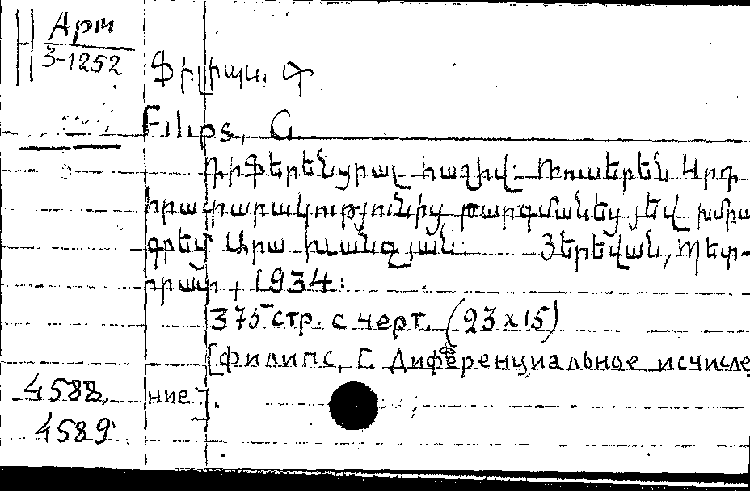 Арм
3-1252
Ֆիլիպս, Գ
Filips, G.
Դիֆերենցիալ հաշիվ: Ռուսերեն
հրատարակությունից թարգմանեց յեվ խմբա
գրեց Արա Յերեվան, Պետ-
հրատ, 1934:
375 стр. с черт. (23x15)
[Филипс, Г. Дифференциальное исчисле
ние].
4588
4589